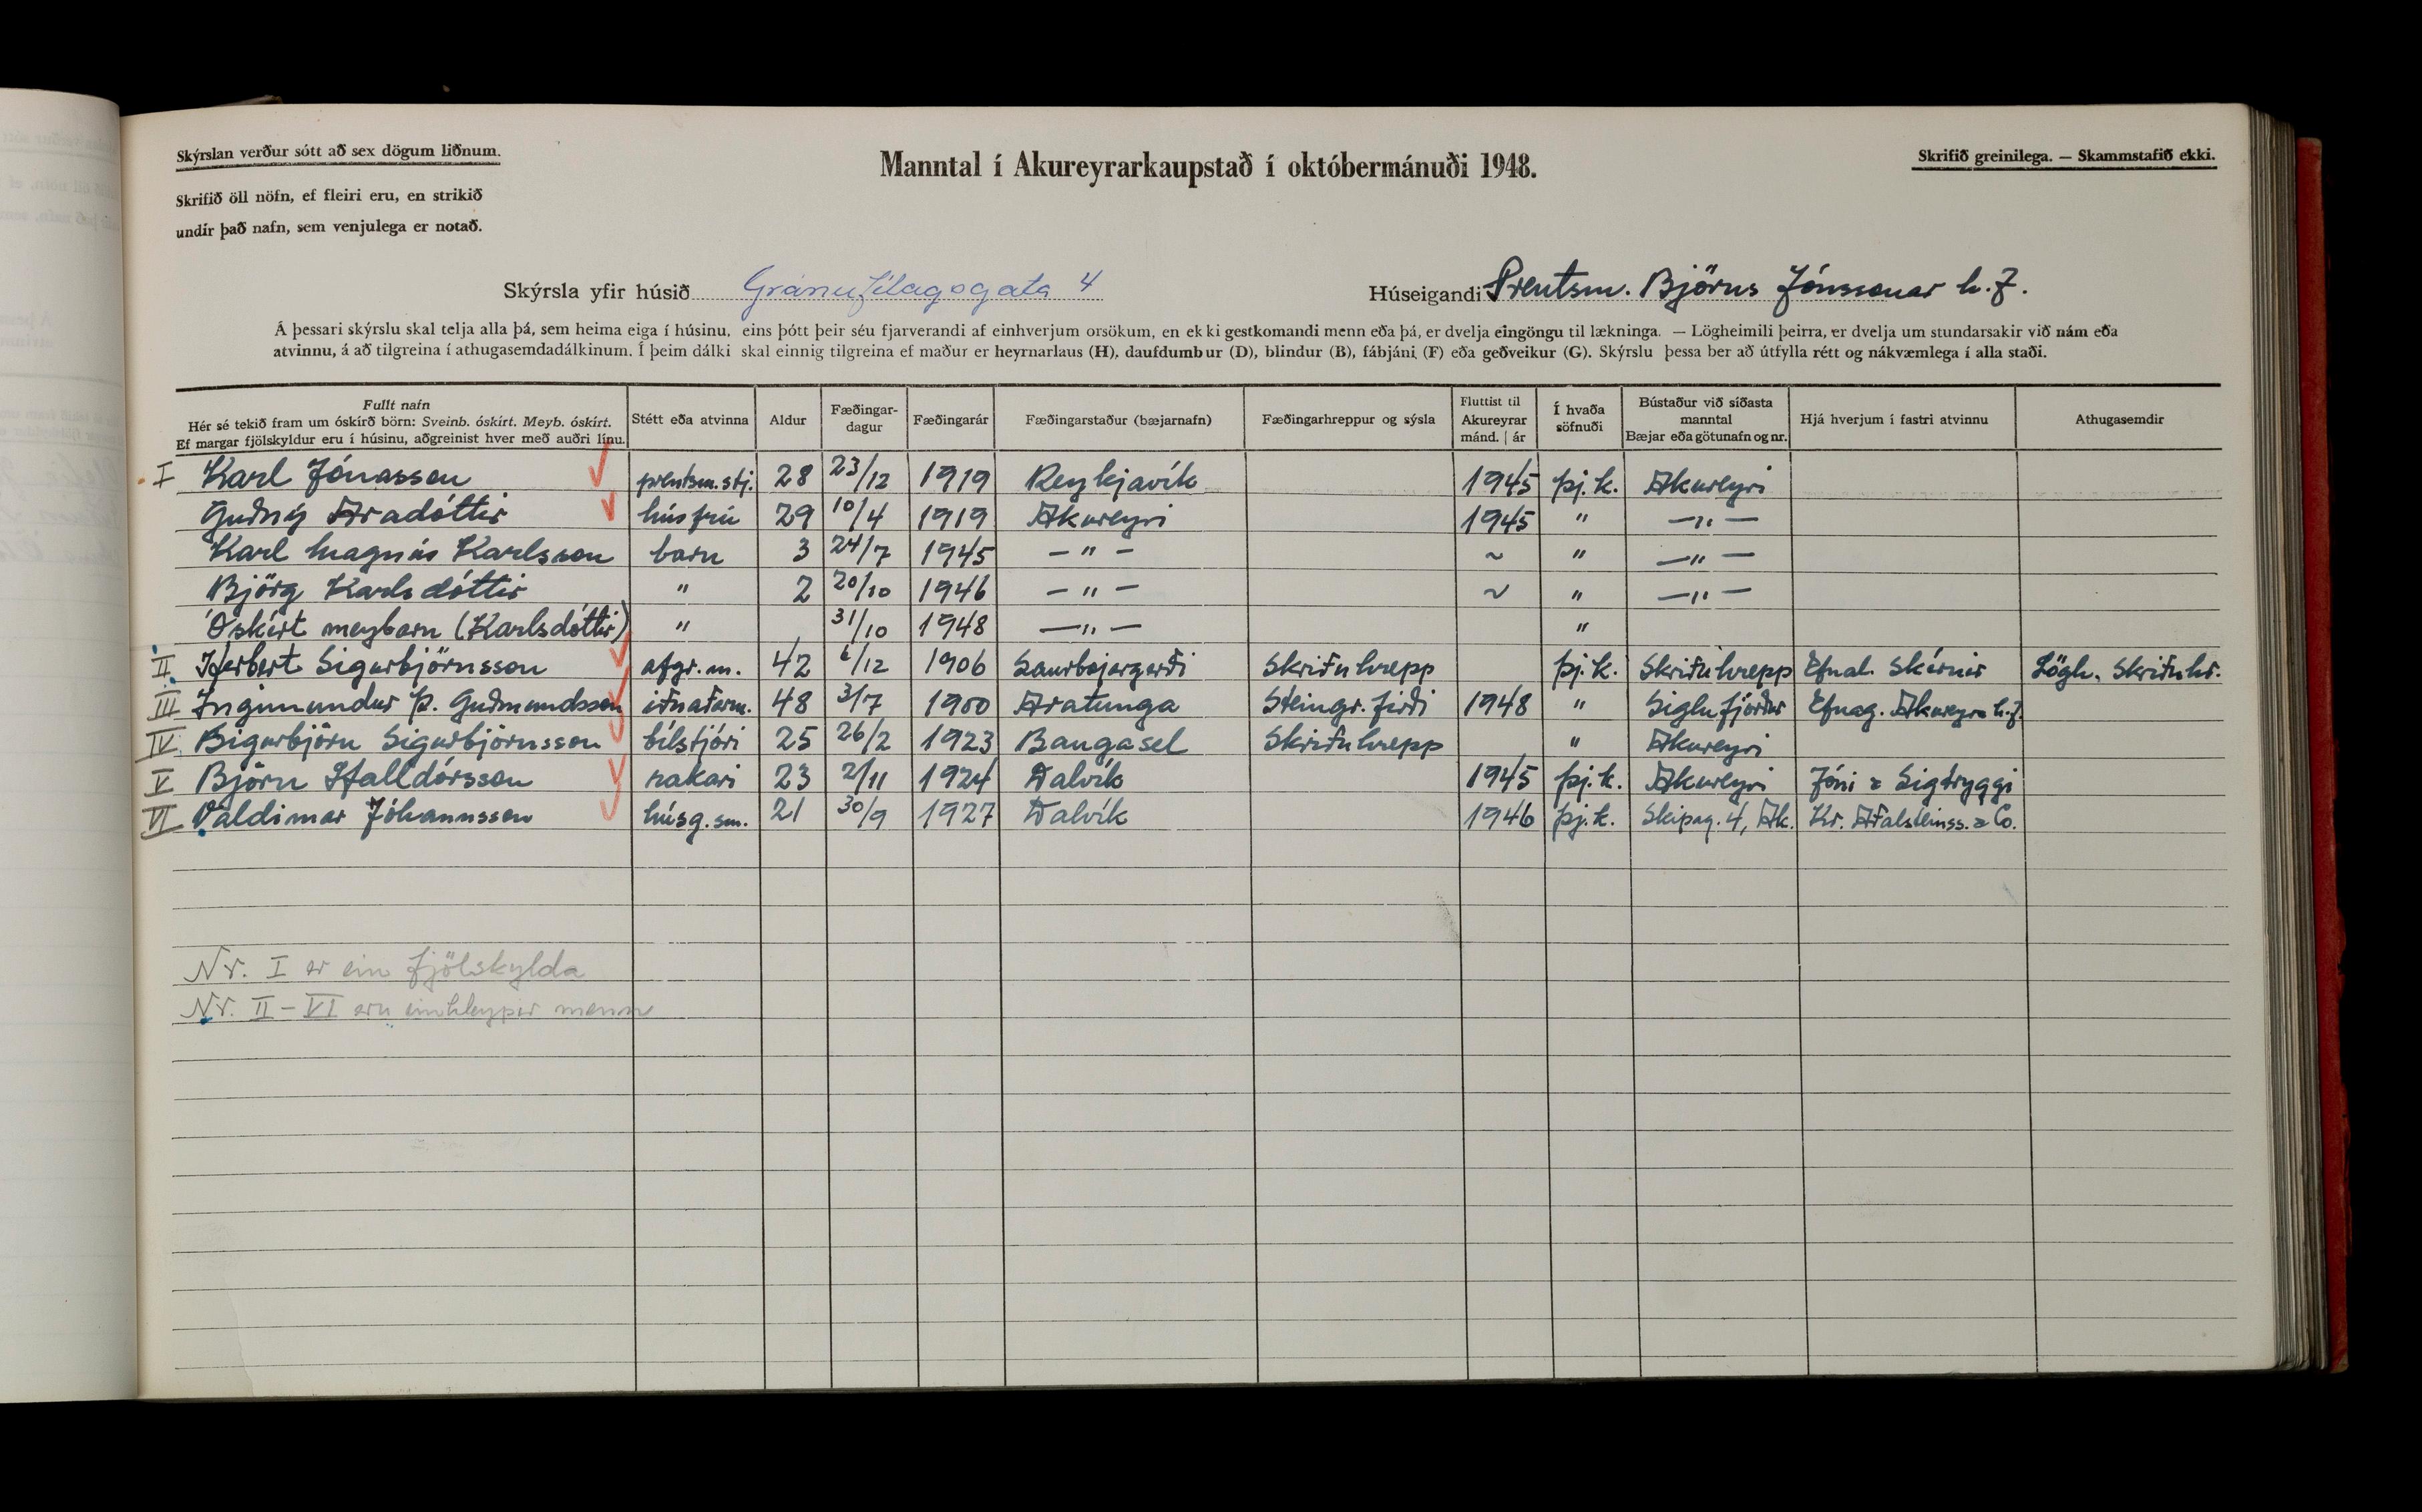 Skýrslan verður sótt að sex dögum liðnum.
Skrifið öll nöfn, ef fleiri eru, en strikið
undir það nafn, sem venjulega er notað.
Manntal í Akureyrarkaupstað í októbermánuði 1948.
Skrifið greinilega. — Skammstafið ekki.
Skýrsla yfir húsið Gránufélagsgata 4
Húseigandi Prentsm. Björns Jónssonar h.f.
Á þessari skýrslu skal telja alla þá, sem heima eiga í húsinu, eins þótt þeir séu fjarverandi af einhverjum orsökum, en ekki gestkomandi menn eða þá, er dvelja eingöngu til lækninga. — Lögheimili þeirra, er dvelja um stundarsakir við nám eða
atvinnu, á að tilgreina í athugasemdadálkinum. Í þeim dálki skal einnig tilgreina ef maður er heyrnarlaus (H), daufdumbur (D), blindur (B), fábjáni (F) eða geðveikur (G). Skýrslu þessa ber að útfylla rétt og nákvæmlega í alla staði.
Fullt nafn
Hér sé tekið fram um óskírð börn: Sveinb. óskírt. Meyb. óskírt.
Ef margar fjölskyldur eru í húsinu, aðgreinist hver með auðri línu.
Stétt eða atvinna
Aldur
Fæðingar-
dagur
Fæðingarár
Fæðingarstaður (bæjarnafn)
Fæðingarhreppur og sýsla
Fluttist til
Akureyrar
mánd. | ár
Í hvaða
söfnuði
Bústaður við síðasta
manntal
Bæjar eða götunafn og nr.
Hjá hverjum í fastri atvinnu
Athugasemdir
I Karl Jónasson prentsm.stj. 28 23/12 1919 Reykjavík 1945 þj.k. Akureyri
Guðný Aradóttir húsfrú 29 10/4 1919 Akureyri 1945 " —"—
Karl Magnús Karlsson barn 3 24/7 1945 —"— ~ " —"—
Björg Karlsdóttir " 2 20/10 1946 —"— ~ " —"—
Óskírt meybarn (Karlsdóttir) " 31/10 1948 —"— "
II Herbert Sigurbjörnsson afgr.m. 42 6/12 1906 Saurbæjargerði Skriðuhrepp þj.k. Skriðuhrepp Efnal. Skírnir Lögh. Skriðuhr.
III Ingimundur Þ. Guðmundsson iðnaðarm. 48 3/7 1900 Aratunga Steingr.firði 1948 " Siglufjörður Efnag. Akureyra h.f.
IV Sigurbjörn Sigurbjörnsson bílstjóri 25 26/2 1923 Baugasel Skriðuhrepp " Akureyri
V Björn Halldórsson rakari 23 2/11 1924 Dalvík 1945 þj.k. Akureyri Jóni & Sigtryggi
VI Valdimar Jóhannsson húsg.sm. 21 30/9 1927 Dalvík 1946 þj.k. Skipag. 4, Ak. Kr. Aðalsteinss. & Co.
Nr. I er ein fjölskylda
Nr. II – VI eru einhleypir menn